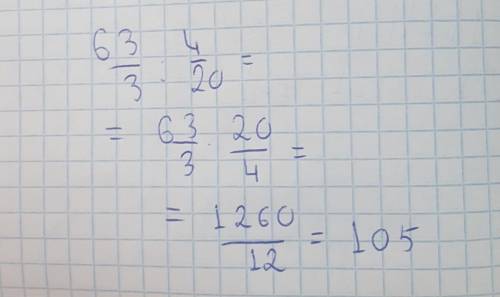 63/3 : 4/20 =
= 63/3 · 20/4 =
= 1260/12 = 105